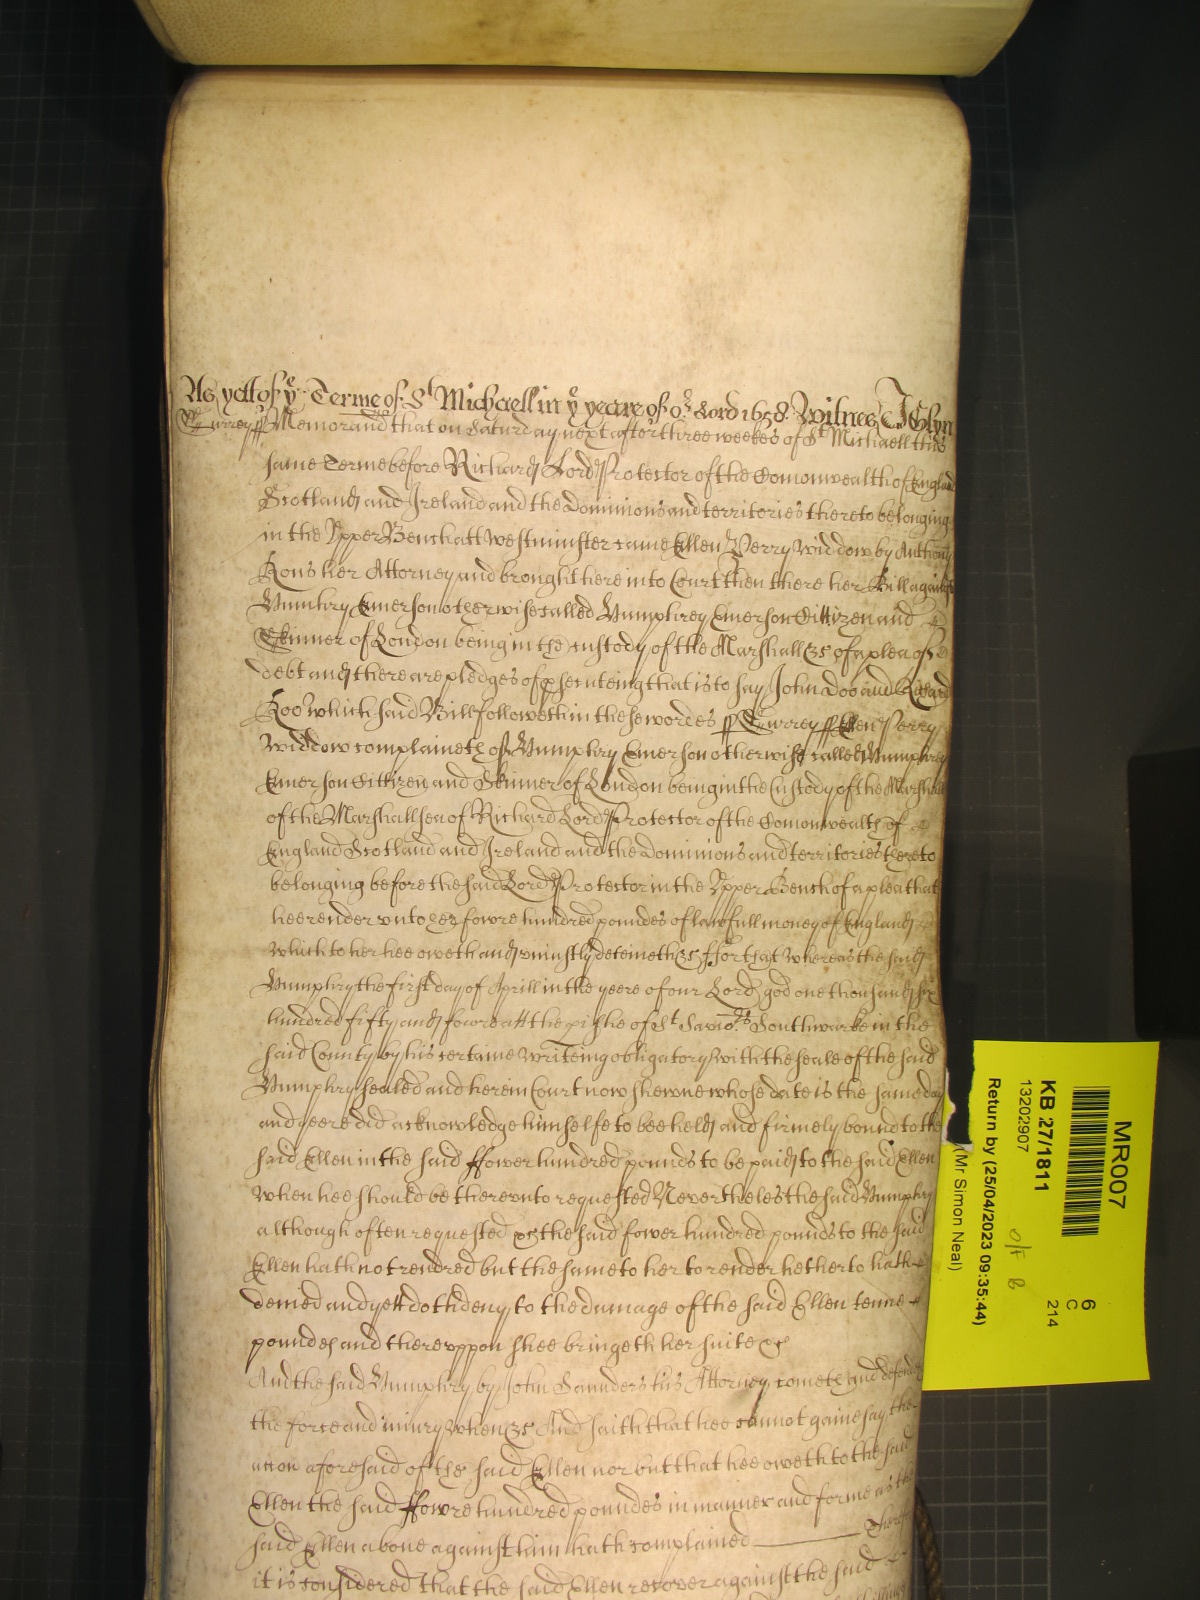 As yett of ye Terme of St Michaell in ye yeare of or Lord 1658. Witnes J Glyn
Surrey ss Memorand that on Saturday next after three weekes of St Michaell this
same Terme before Richard Lord Protector of the Comonwealth of England
Scotland and Ireland and the dominions and territories thereto belonging
in the Upper Bench att Westminster came Ellen Perry Widdow by Anthony
her Attorney and brought here into Court then there her Bill against
Humfry Emerson otherwise called Humphrey Emerson Cittizen and
Skinner of London being in the custody of the Marshall &c of a plea of
debt and there are pledges of prsecuteing that is to say John Doo and Richard
Roo which said Bill followeth in these wordes ss Surrey ss Ellen Perry
Widdow complaineth of Humphry Emerson otherwise called Humphrey
Emerson Cittizen and Skinner of London being in the Custody of the Marshall
of the Marshallsea of Richard Lord Protector of the Comonwealth of
England Scotland and Ireland and the dominions and territories thereto
belonging before the said Lord Protector in the Upper Bench of a plea that
hee render vnto her fowre hundred poundes of lawfull money of England
which to her hee oweth and vniustly deteineth &c ffor that whereas the said
Humphry the first day of Aprill in the yeere of our Lord god one thousand six
hundred fifty and fowre att the pishe of St Saviors Southwarke in the
said County by his certaine writeing obligatory with the seale of the said
Humphry sealed and here in Court now shewne whose date is the same day
and yeere did acknowledge himselfe to bee held and firmely bound to the
said Ellen in the said ffower hundred pounds to be paid to the said Ellen
when hee should be therevnto requested Neverthelesthe said Humphry
although often requested &c the said fower hundred pounds to the said
Ellen hath not rendred but the same to her to render hetherto hath
denied and yett doth deny to the damage of the said Ellen tenne
poundes and therevppon shee bringeth her suite &c
And the said Humphry by John Saunders his Attorney cometh and defendeth
the force and iniury when &c And saith that hee cannot gainesay the
accion aforesaid of the said Ellen nor but that hee oweth to the said
Ellen the said ffowre hundred poundes in manner and forme as the
said Ellen above against him hath complained Therefore
it is considered that the said Ellen recover against the said
MR007
6
C
214
KB 27/1811
13202907
O/F B
Return by (25/04/2023 09:35:44)
(Mr Simon Neal)